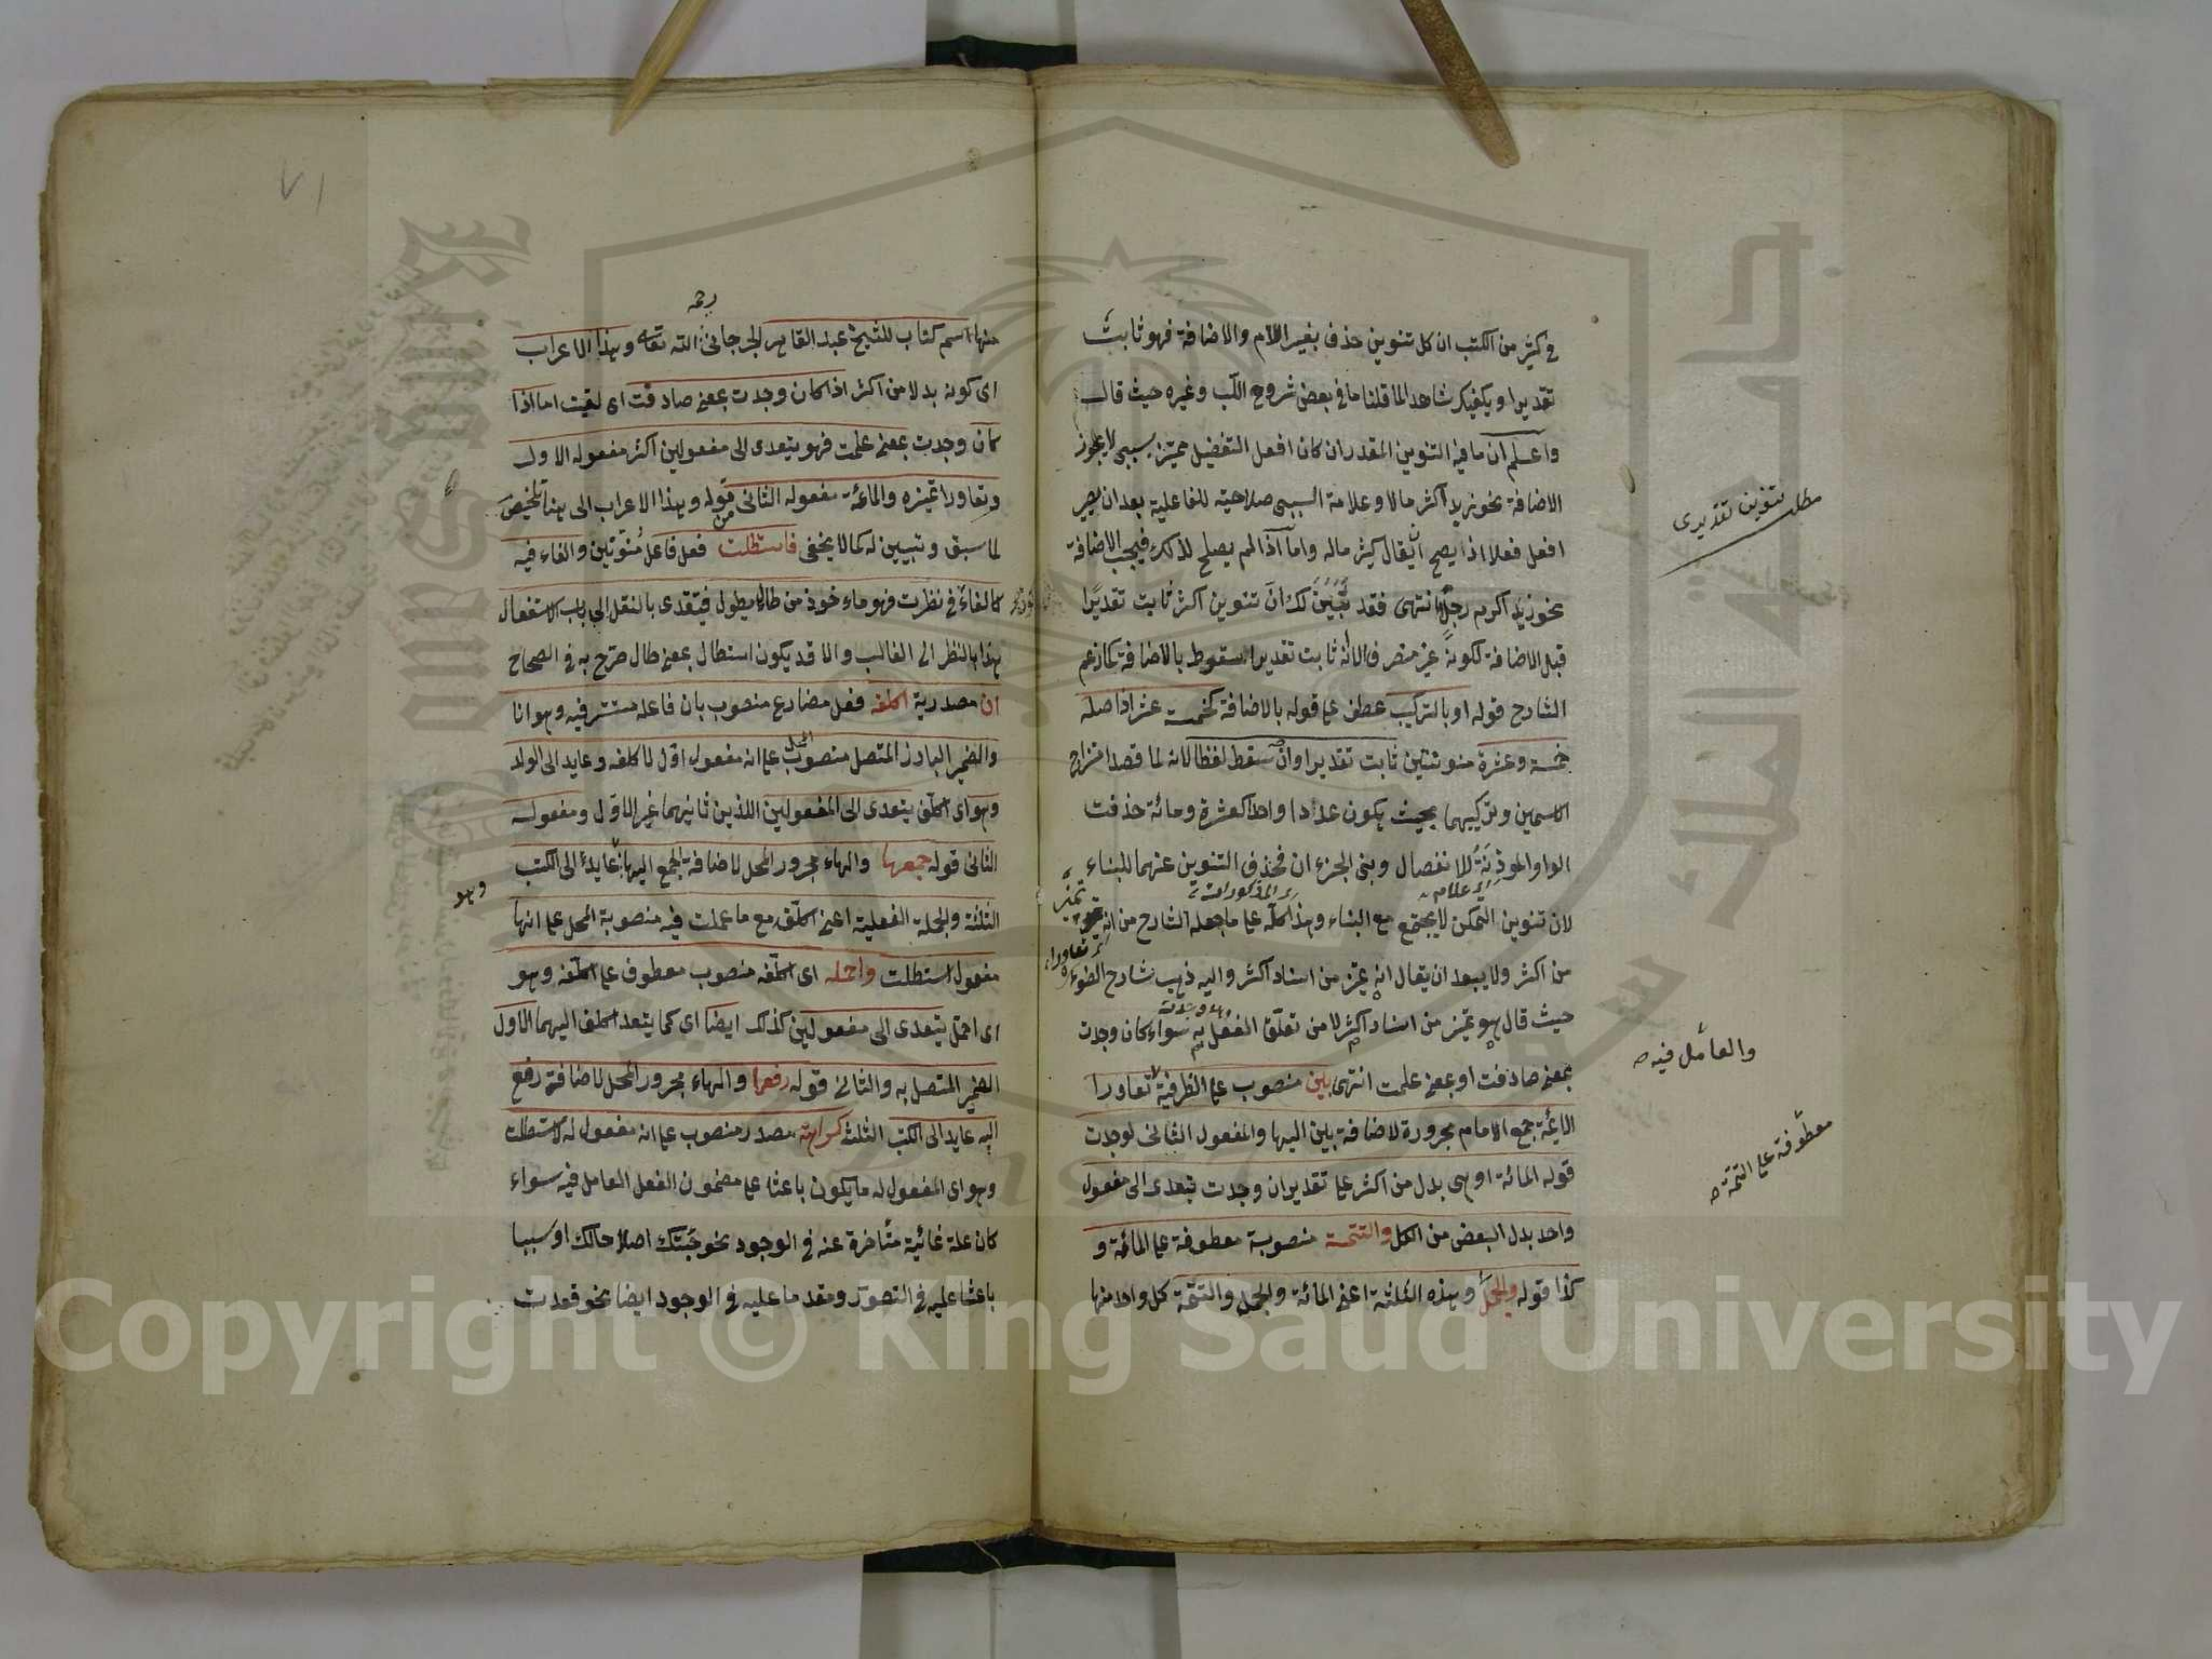 في كثير من الكتب ان كل تنوين حذف بغير اللام والاضافة فهو ثابت
تقديرا ويكفيك شاهدا لما قلنا ما في بعض شروح اللب وغيره حيث قال
واعلم ان ما فيه التنوين المقدر ان كان افعل التفضيل مميزه سببي لا يجوز
الاضافة نحو زيد اكثر مالا وعلامة السببي صلاحيته للفاعلية بعد ان يصير
افعل فعلا اذا يصح ان يقال كثر ماله واما اذا لم يصلح لذلك فيجب الاضافة
نحو زيد اكرم رجل انتهى فقد تبين لك ان تنوين اكثر ثابت تقديرا
قبل الاضافة لكونه غير منصرف لا انه ثابت تقديرا سقوط بالاضافة كما زعم
الشارح قوله او بالتركيب عطف على قوله بالاضافة كخمسة عشر اذ اصله
خمسة وعشرة منونتين ثابت تقديرا وان سقط لفظا لانه لما قصد امتزاج
الاسمين وتركيبهما بحيث يكون عددا واحدا كعشرة ومائة حذفت
الواو الموذنة للانفصال وبنى الجزء ان فحذف التنوين عنهما للبناء
لان تنوين التمكن لا يجتمع مع البناء وهذا كله على ما جعله الشارح من انه تميز
من اكثر ولا يبعد ان يقال انه تميز من اسناد اكثر واليه ذهب شارح الضوء
حيث قال هو تميز من اسناد اكثر لا من تعلق الفعل به سواء كان وجدت
بمعنى صادفت او بمعنى علمت انتهى بين منصوب على الظرفية لا تعاورا
الايمة جمع الامام مجرورة لاضافة بين اليها والمفعول الثاني لوجدت
قوله المائة او هي بدل من اكثر على تقدير ان وجدت يتعدى الى مفعول
واحد بدل البعض من الكل والتتمة منصوبة معطوفة على المائة و
كذا قوله والجمل وهذه الثلثة اعني المائة والجمل والتتمة كل واحد منها
مطلب تنوين تقديرى
والعامل فيه
معطوفة على التتمة
٧١
رحمه
منها اسم كتاب للشيخ عبد القاهر الجرجاني الله تعالى وهذا الاعراب
اى كونه بدلا من اكثر اذا كان وجدت بمعنى صادفت اى لقيت اما اذا
كان وجدت بمعنى علمت فهو يتعدى الى مفعولين اكثر مفعوله الاول
وتعاورا تميزه والمائة مفعوله الثاني قوله وهذا الاعراب الى هنا تلخيص
لما سبق وتبيين له كما لا يخفى فاستطلت فعل فاعل من متوتين والفاء فيه
كالفاء في نظرت فهو ماءخوذ من طال يطول فيتعدى بالنقل الى باب الاستفعال
هذا بالنظر الى الغالب والا قد يكون استطال بمعنى طال صرح به في الصحاح
ان مصدرية اكلفه فعل مضارع منصوب بان فاعله مستتر فيه وهو انا
والضمير البارز المتصل منصوب المحل على انه مفعول اول لاكلفه وعايد الى الولد
وهو اى اكلف يتعدى الى المفعولين اللذين ثانيهما غير الاول ومفعوله
الثاني قوله جمعها والهاء مجرور المحل لاضافة الجمع اليها عايد الى الكتب
الثلثة والجملة الفعلية اعنى اكلف مع ما عملت فيه منصوبة المحل على انها
وهو
مفعول استطلت واحمله اى اكلفه منصوب معطوف على اكلفه وهو
اى احمل يتعدى الى مفعولين كذلك ايضا اى كما يتعد اكلف اليهما الاول
الضمير المتصل به والثاني قوله رفعها والهاء مجرور المحل لاضافة رفع
اليه عايد الى الكتب الثلثة كراهة مصدر منصوب على انه مفعول له لاستطلت
وهو اى المفعول له ما يكون باعثا على مضمون الفعل العامل فيه سواء
كان علة غائية متأخرة عنه في الوجود نحو جئتك اصلاحا لك او سببا
باعثا عليه في التصور ومقدما عليه في الوجود ايضا نحو قعدت
Copyright © King Saud University